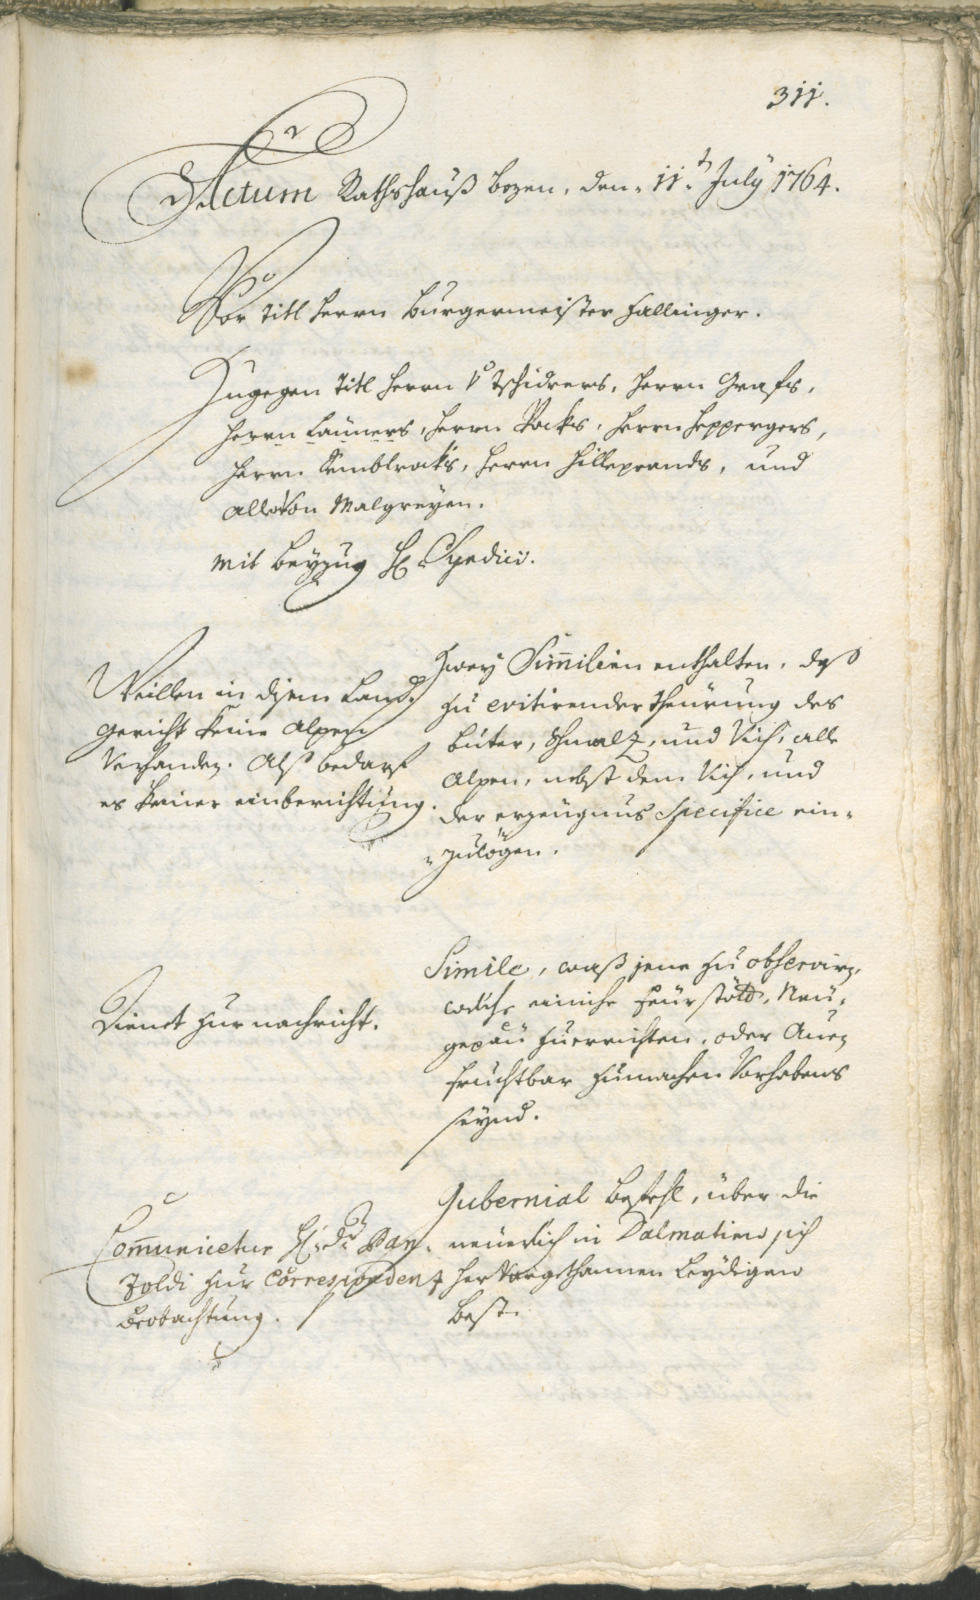 311.
Actum Rathshauß Bozen, den 11.t July 1764.
Vor Titl Herrn Burgermeister Hallinger.
Zugegen Titl Herrn v Tschiderers, Herrn Grafs,
Herrn Launers, Herrn Pocks, Herrn Heppergers,
Herrn Kemblrocks, Herrn Hilleprands, und
all von Malgreyen.
mit Beyzug H: Syndici.
Weillen in disem Land
Gericht keine Alpen
Verhanden. Alß bedarf
es keiner einberichtung.
Zwey Similien enthalten, daß
zu evitirender theurung des
Buter, Schmalz, und Vich, alle
Alpen, nebst dem Vich, und
der erzeugnus Specifice ein-
-zulögen.
Dienet zur nachricht.
Simile, waß jene zu observirn,
welche einiche Feurstött, Neu-
gepäu zuerrichten, oder Auen
fruchtbar zumachen Vorhabens
seynd.
Com̄unicetur H: Dr Pan-
zoldi zur Correspondenz
beobachtung.
Gubernial Befehl, über die
neuerlich in Dalmatien sich
hervorgethannen Leydigen
Pest.